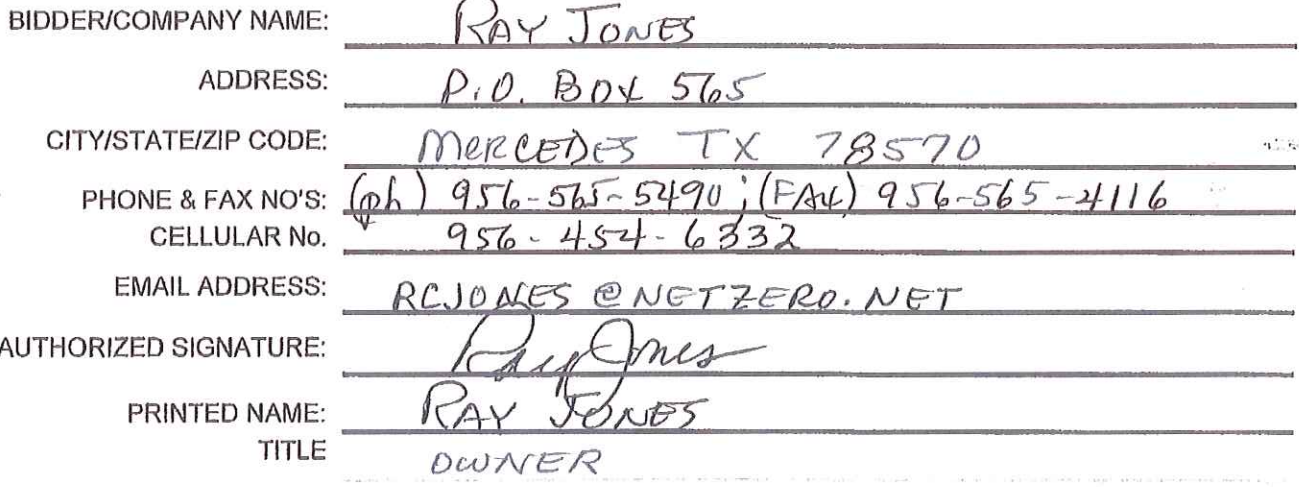 BIDDER/COMPANY NAME: RAY JONES
ADDRESS: P.O. BOX 565
CITY/STATE/ZIP CODE: MERCEDES TX 78570
PHONE & FAX NO'S: (ph) 956-565-5490; (FAX) 956-565-4116
CELLULAR No. 956-454-6332
EMAIL ADDRESS: RCJONES @NETZERO.NET
AUTHORIZED SIGNATURE: Ray Jones
PRINTED NAME: RAY JONES
TITLE OWNER